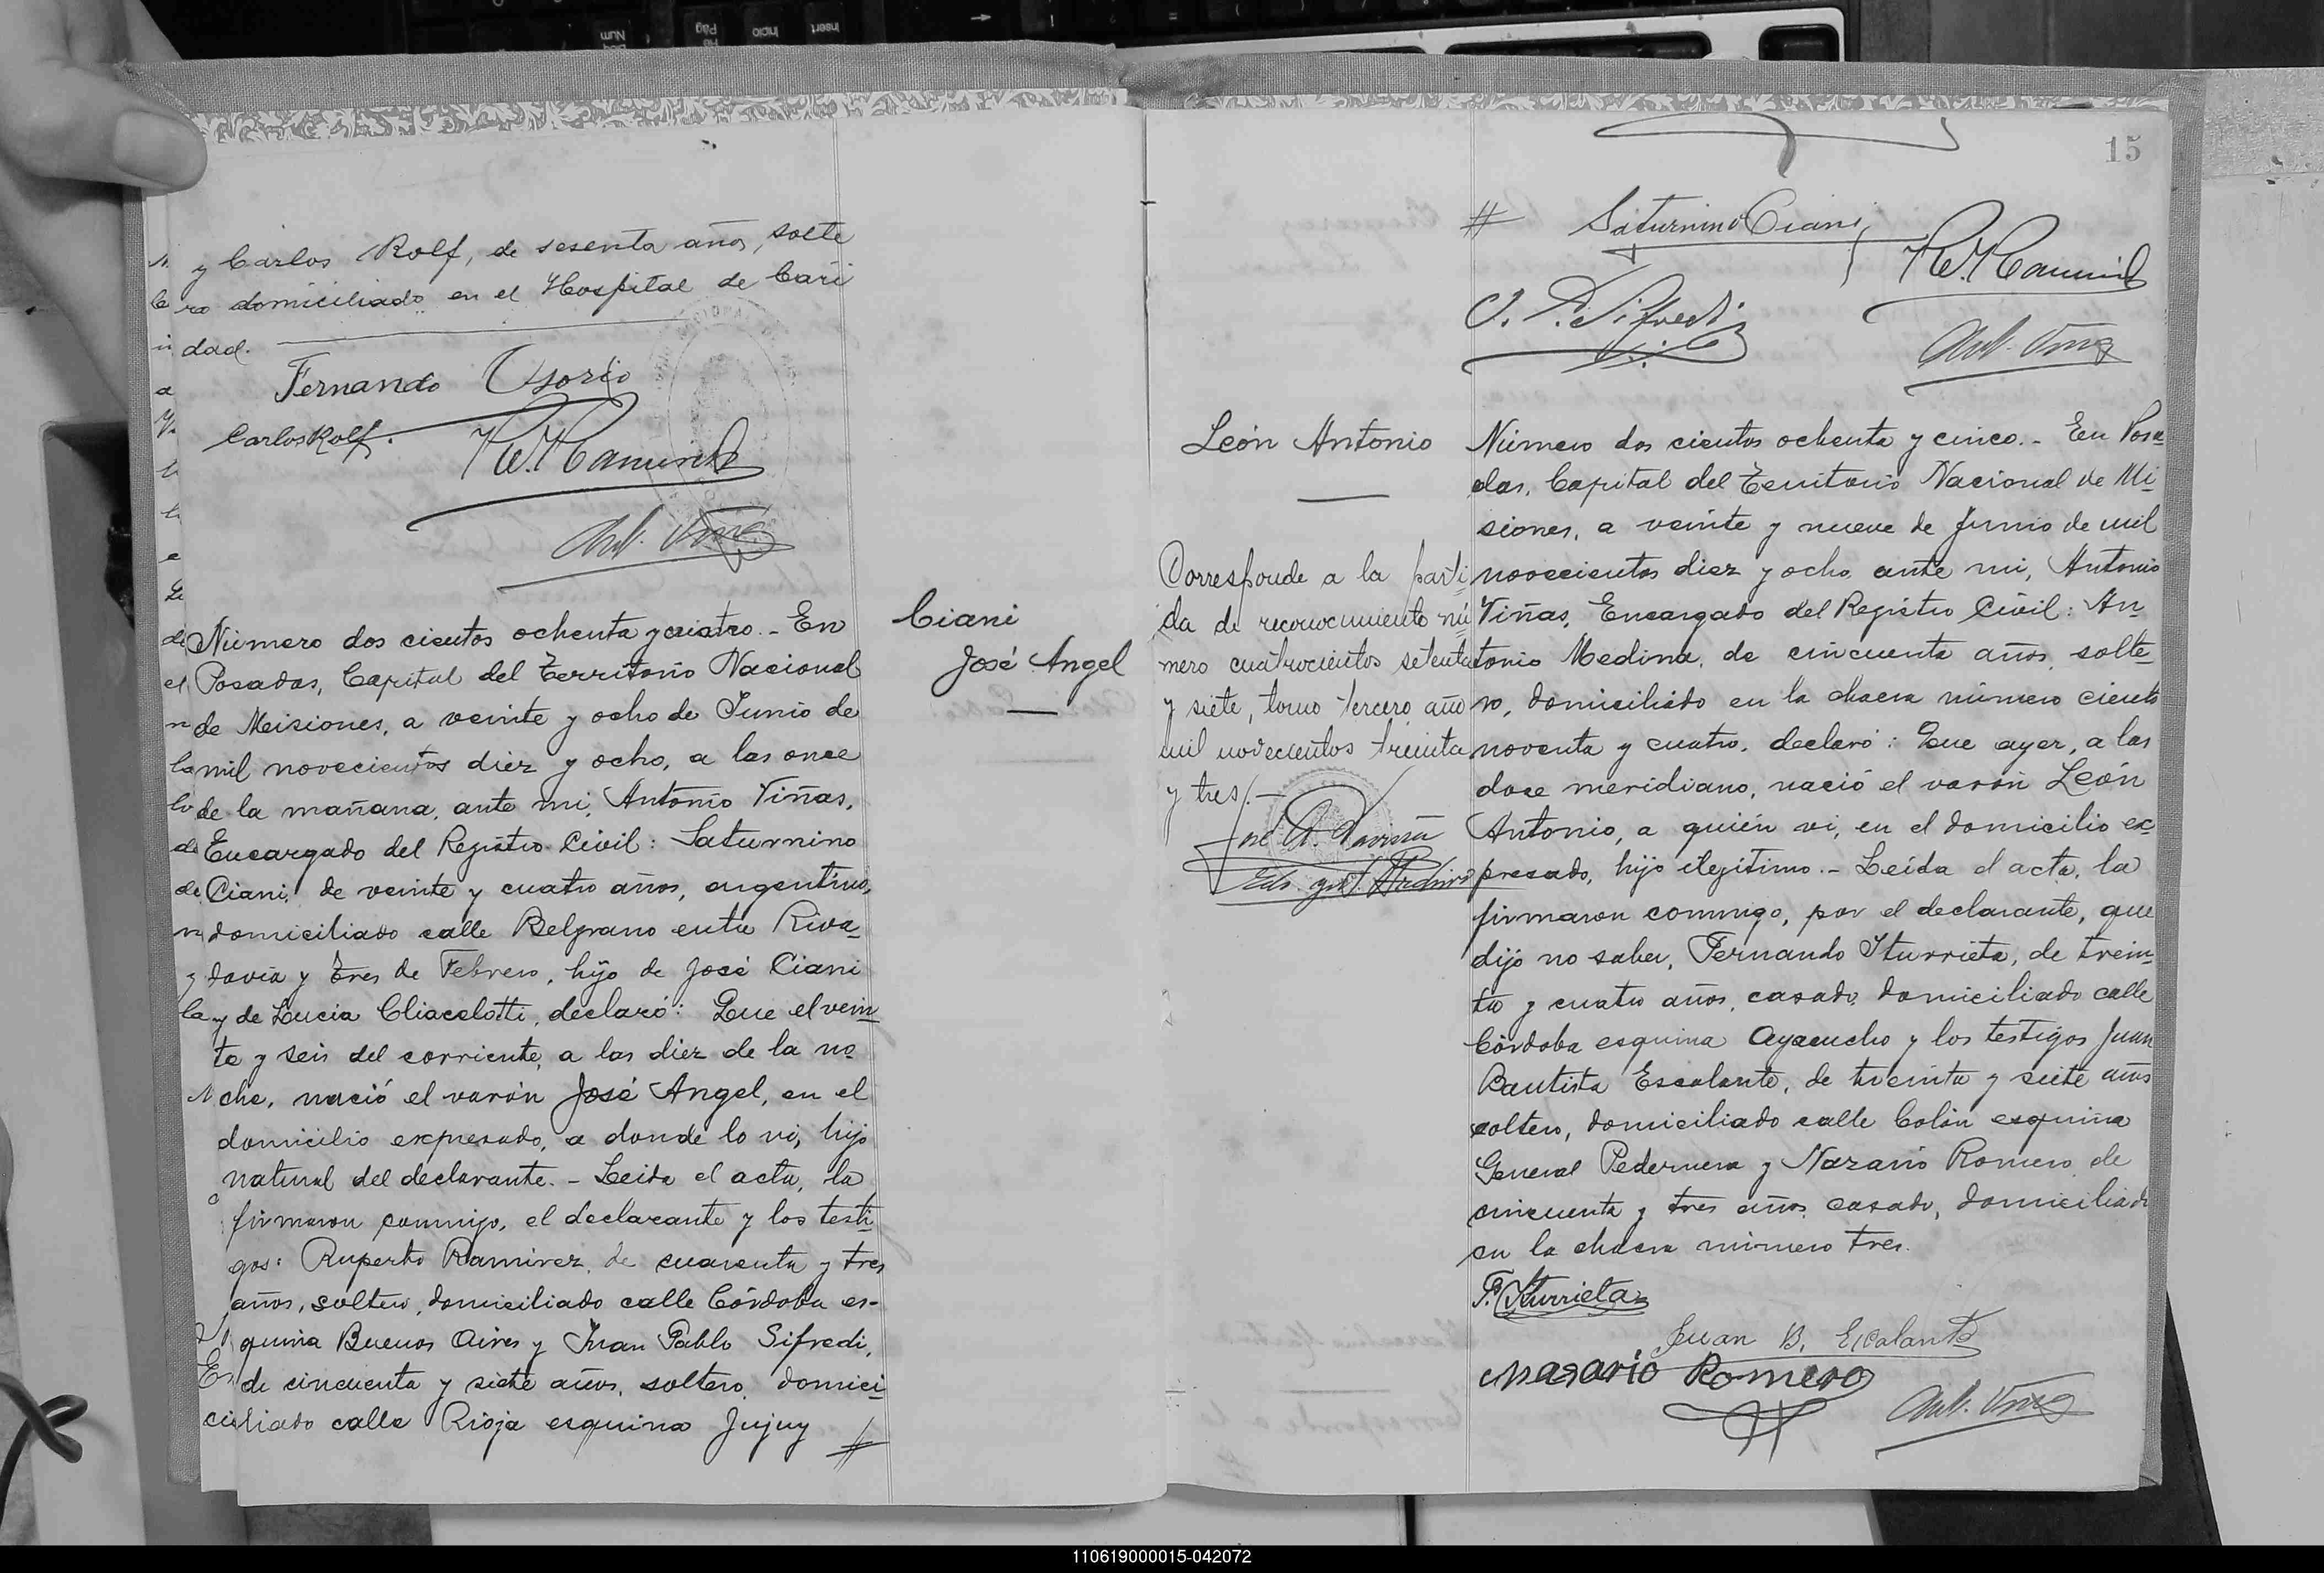 y Carlos Rolf, de sesenta años, solte
ro domiciliado en el Hospital de Cari
dad.
Fernando Osorio
Carlos Rolf.
R. Ramirez
Ant. Viñas
Número dos cientos ochenta y cuatro. - En
Posadas, Capital del Territorio Nacional
de Meisiones, a veinte y ocho de Junio de
mil novecientos diez y ocho, a las once
de la mañana, ante mi, Antonio Viñas,
Encargado del Registro Civil: Saturnino
Ciani, de veinte y cuatro años, argentino,
domiciliado calle Belgrano entre Riva-
davia y Tres de Febrero, hijo de José Ciani
y de Lucia Cliacelotti, declaró: Que el vein
te y seis del corriente, a las diez de la no
che, nació el varón José Angel, en el
domicilio expresado, a donde lo vi, hijo
natural del declarante. - Leida el acta, la
firmaron conmigo, el declarante y los testi
gos: Ruperto Ramirez, de cuarenta y tres
años, soltero, domiciliado calle Córdoba es-
quina Buenos Aires y Juan Pablo Sifredi,
de cincuenta y siete años, soltero, domici
ciliado calle Rioja esquina Jujuy #
Ciani
José Angel
15
# Saturnino Ciani
R. Ramirez
J. P. Sifredi
Ant. Viñas
León Antonio
Corresponde a la parti
da de reconocimiento nú
mero cuatrocientos setenta
y siete, tomo tercero año
mil novecientos treinta
y tres.-
Número dos cientos ochenta y cinco. - En Posa
das, Capital del Territorio Nacional de Mi
siones, a veinte y nueve de Junio de mil
novecientos diez y ocho, ante mi, Antonio
Viñas, Encargado del Registro Civil: An-
tonio Medina, de cincuenta años, solte-
ro, domiciliado en la chacra número ciento
noventa y cuatro, declaró: Que ayer, a las
doce meridiano, nació el varón León
Antonio, a quién vi, en el domicilio ex
presado, hijo ilegitimo. - Leida el acta, la
firmaron conmigo, por el declarante, que
dijo no saber, Fernando Iturrieta, de trein-
ta y cuatro años, casado, domiciliado calle
Córdoba esquina Ayacucho y los testigos Juan
Bautista Escalante, de treinta y siete años
soltero, domiciliado calle Colón esquina
General Pedernera y Nazario Romero, de
cincuenta y tres años, casado, domiciliado
en la chacra número tres.
F. Iturrieta
Juan B. Escalante
Nazario Romero
Ant. Viñas
110619000015-042072